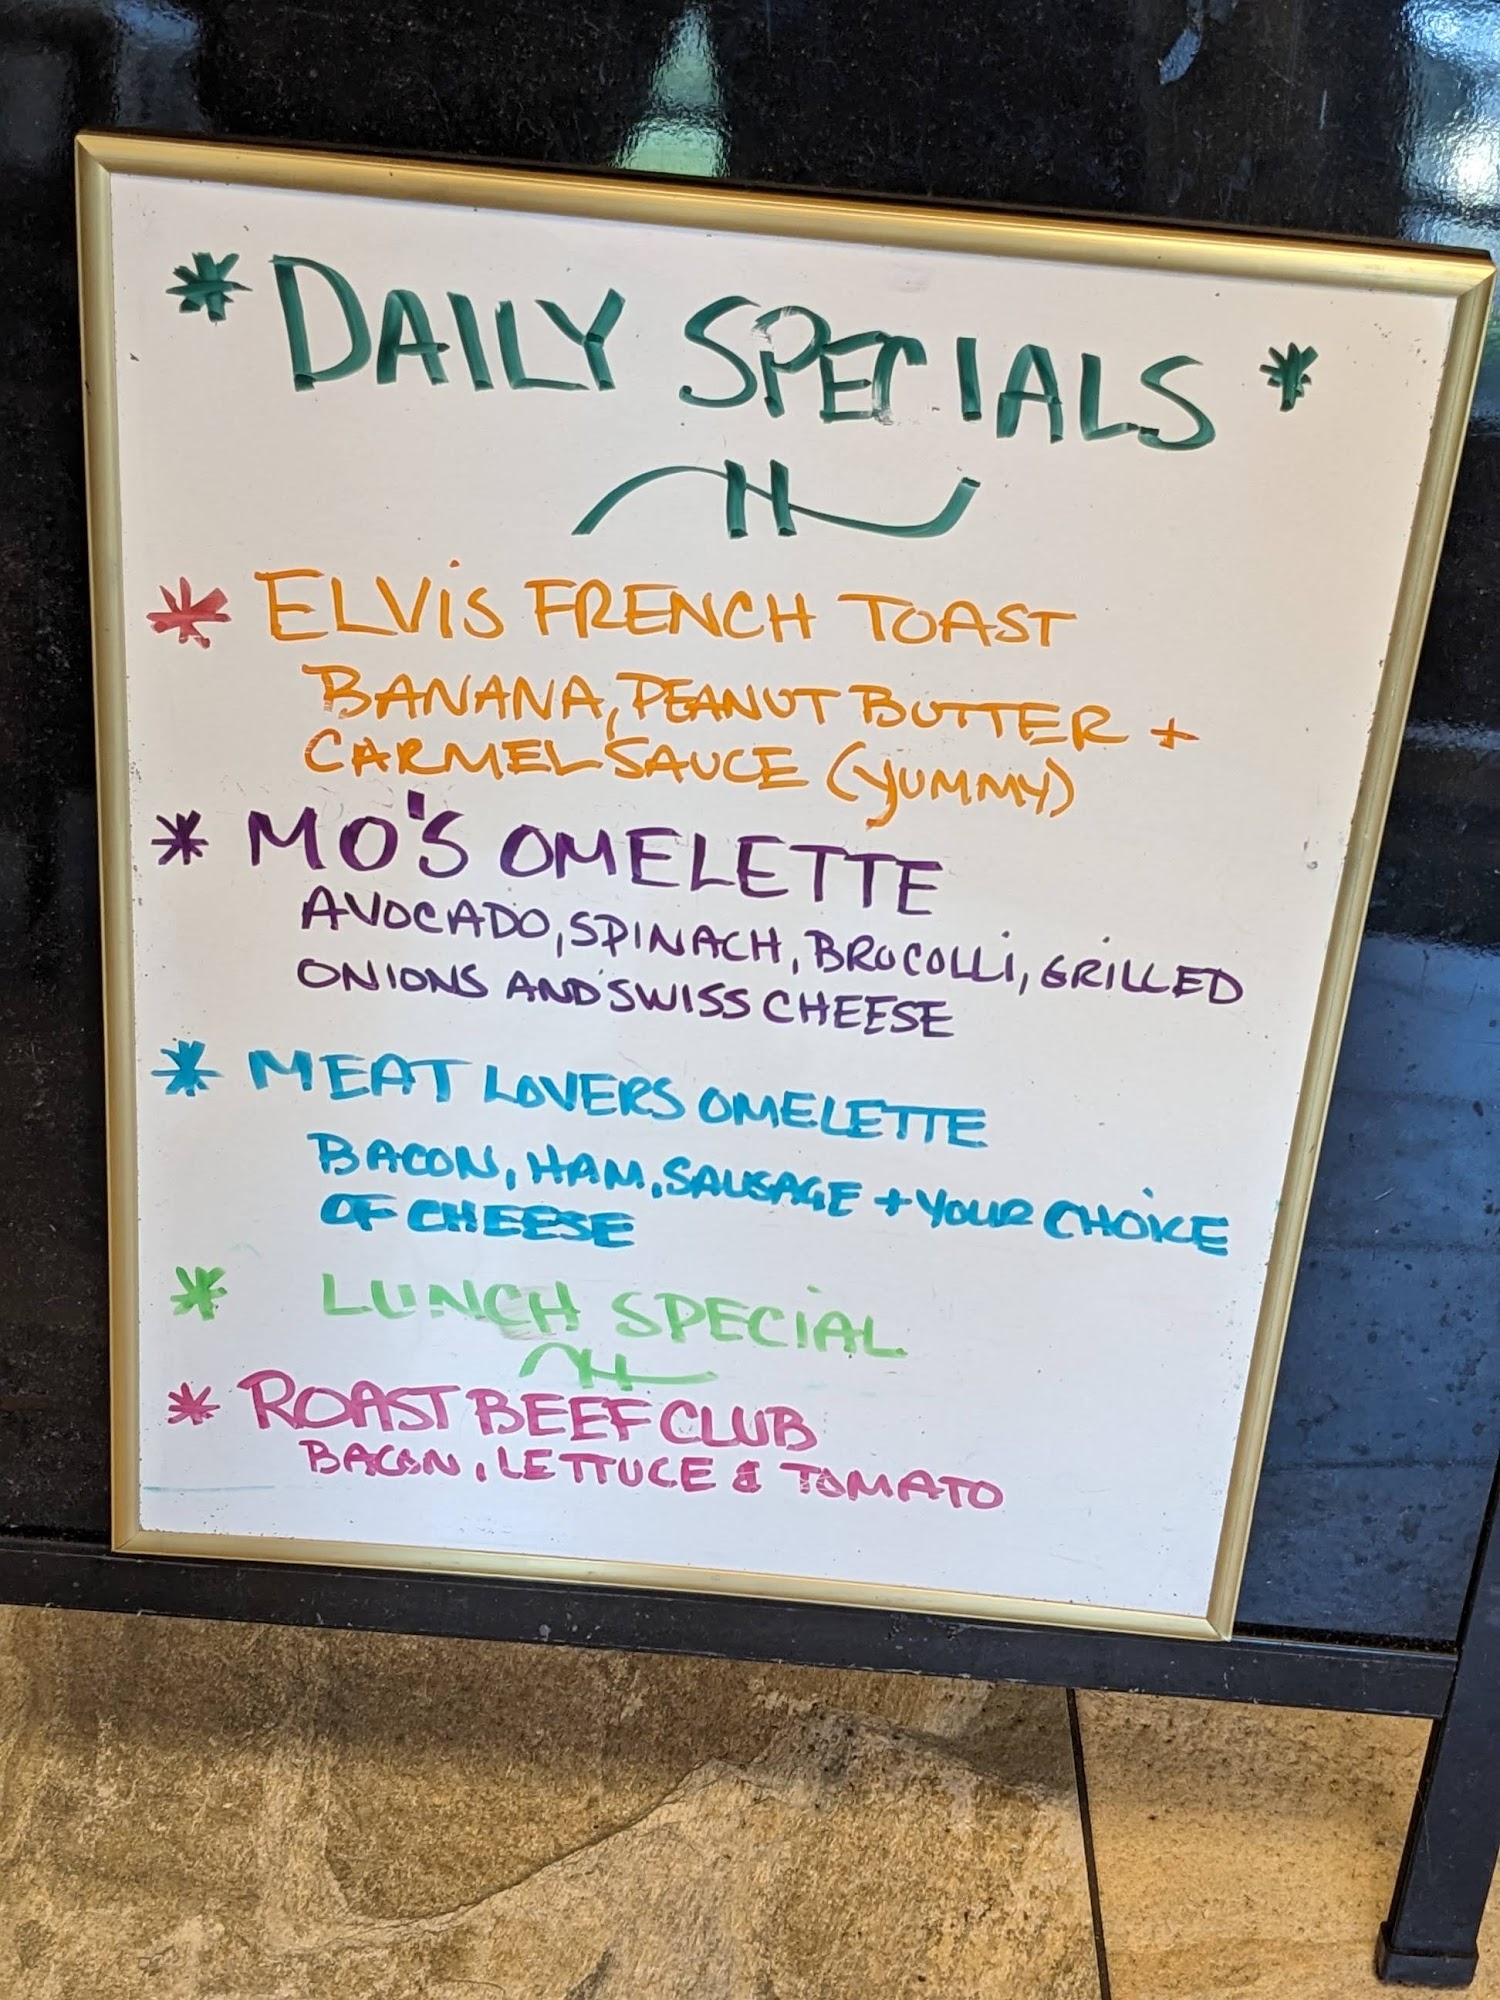 * DAILY SPECIALS *
* ELViS FRENCH TOAST
BANANA, PEANUT BUTTER +
CARMEL SAUCE (YUMMY)
* MO'S OMELETTE
AVOCADO, SPINACH, BROCOLLi, GRiLLED
ONIONS AND SWISS CHEESE
* MEAT LOVERS OMELETTE
BACON, HAM, SAUSAGE + YOUR CHOiCE
OF CHEESE
* LUNCH SPECiAL
* ROAST BEEF CLUB
BACON, LETTUCE & TOMATO